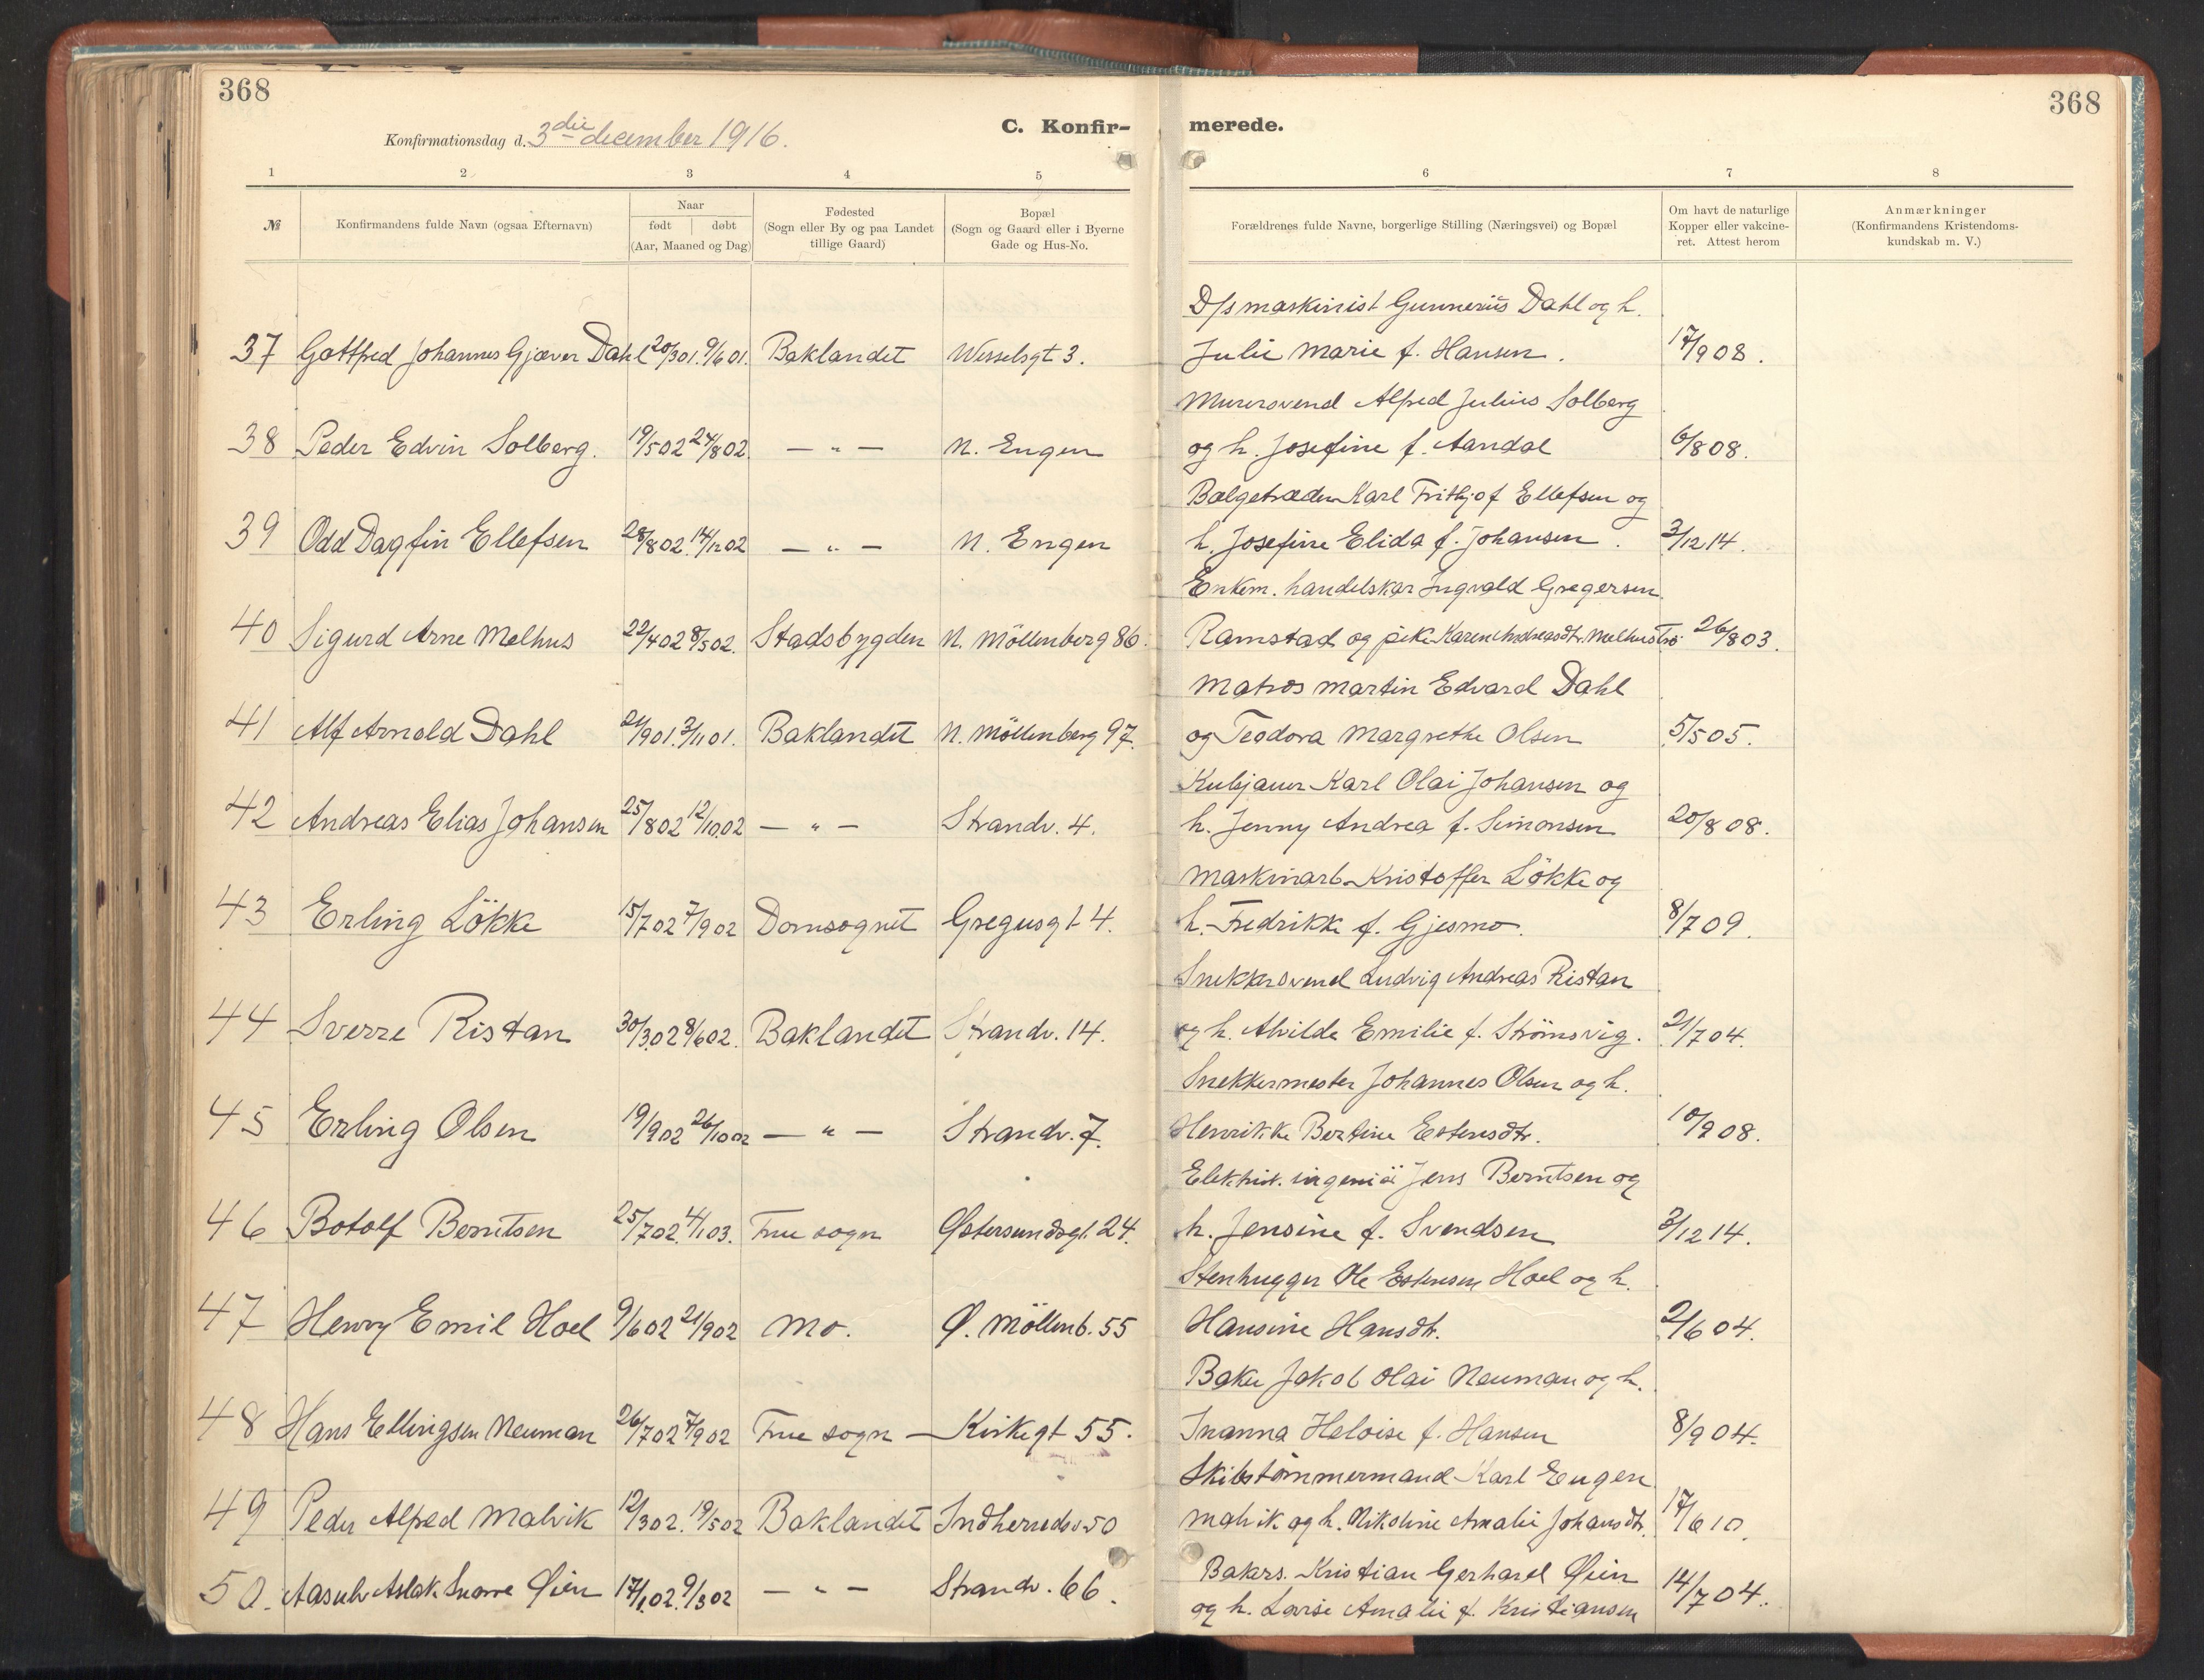 368
368
Konfirmationsdag d. 3die december 1916.
C. Konfir-
merede.
1 2 3 4 5 6 7 8
№ Konfirmandens fulde Navn (ogsaa Efternavn)
Naar
født døbt
(Aar, Maaned og Dag)
Fødested
(Sogn eller By og paa Landet
tillige Gaard)
Bopæl
(Sogn og Gaard eller i Byerne
Gade og Hus-No.
Forældrenes fulde Navne, borgerlige Stilling (Næringsvei) og Bopæl
Om havt de naturlige
Kopper eller vakcine-
ret. Attest herom
Anmærkninger
(Konfirmandens Kristendoms-
kundskab m. V.)
D/s maskinist Gunnerius Dahl og h.
37 Gottfred Johannes Gjæver Dahl 20/3 01. 9/6 01. Baklandet Wesselsgt 3. Julie Marie f. Hansen. 17/9 08.
Murersvend Alfred Julius Solberg
38 Peder Edvin Solberg. 19/5 02 24/8 02. — " — N. Engen og h. Josefine f. Aandal 6/8 08.
Bælgetræder Karl Fritjof Ellefsen og
39 Odd Dagfin Ellefsen 28/8 02. 14/12 02 — " — N. Engen h. Josefine Elida f. Johansen. 3/12 14.
Enkem. handelskar Ingvald Gregersen
40 Sigurd Arne Melhus 22/4 02 8/5 02. Stadsbygden N. Möllenberg 86. Ramstad og pike Karen Andreasdt. Melhustrø 26/8 03.
Matros Martin Edvard Dahl
41 Alf Arnold Dahl 21/9 01. 3/11 01. Baklandet N. Möllenberg 97. og Teodora Margrethe Olsen 5/5 05.
Kuljauer Karl Olai Johansen og
42 Andreas Elias Johansen 25/8 02 12/10 02 — " — Strandv. 4. h. Jenny Andrea f. Simonsen 20/8 08.
Maskinarb. Kristoffer Lökke og
43 Erling Lökke 15/7 02 7/9 02 Domsognet Gregusgt 4. h. Fredrikke f. Gjesmo. 8/7 09.
Snekkersvend Ludvig Andreas Ristan
44 Sverre Ristan 30/3 02 8/6 02. Baklandet Strandv. 14. og h. Alvilde Emilie f. Strömsvig. 21/7 04.
Snekkermester Johannes Olsen og h.
45 Erling Olsen 19/9 02 26/10 02 — " — Strandv. 7. Henrikke Bertine Estensdtr. 10/9 08.
Elektrik. ingeniö Jens Berntsen og
46 Botolf Berntsen 25/7 02. 4/1 03. Frue sogn Østersundsgt. 24. h. Jensine f. Svendsen 3/12 14.
Stenhugger Ole Estensen Hoel og h.
47 Henry Emil Hoel 9/6 02 21/9 02 Mo. Ø. Möllenb. 55 Hansine Hansdt. 2/6 04.
Baker Jakob Olai Neuman og h.
48 Hans Ellingsen Neuman 26/7 02 7/9 02 Frue sogn — Kirkegt 55. Inanna Heloise f. Hansen 8/9 04.
Skibstömmermand Karl Eugen
49 Peder Alfred Malvik 12/3 02. 19/5 02 Baklandet Indherredsv 50 Malvik og h. Nikoline Amalie Johansdt. 17/6 10.
Bakers. Kristian Gerhard Øien
50. Aasulv Aslak Snorre Øien 17/1 02. 9/3 02 — " — Strandv. 66. 14/7 04.
og h. Lovise Amalie f. Kristiansen